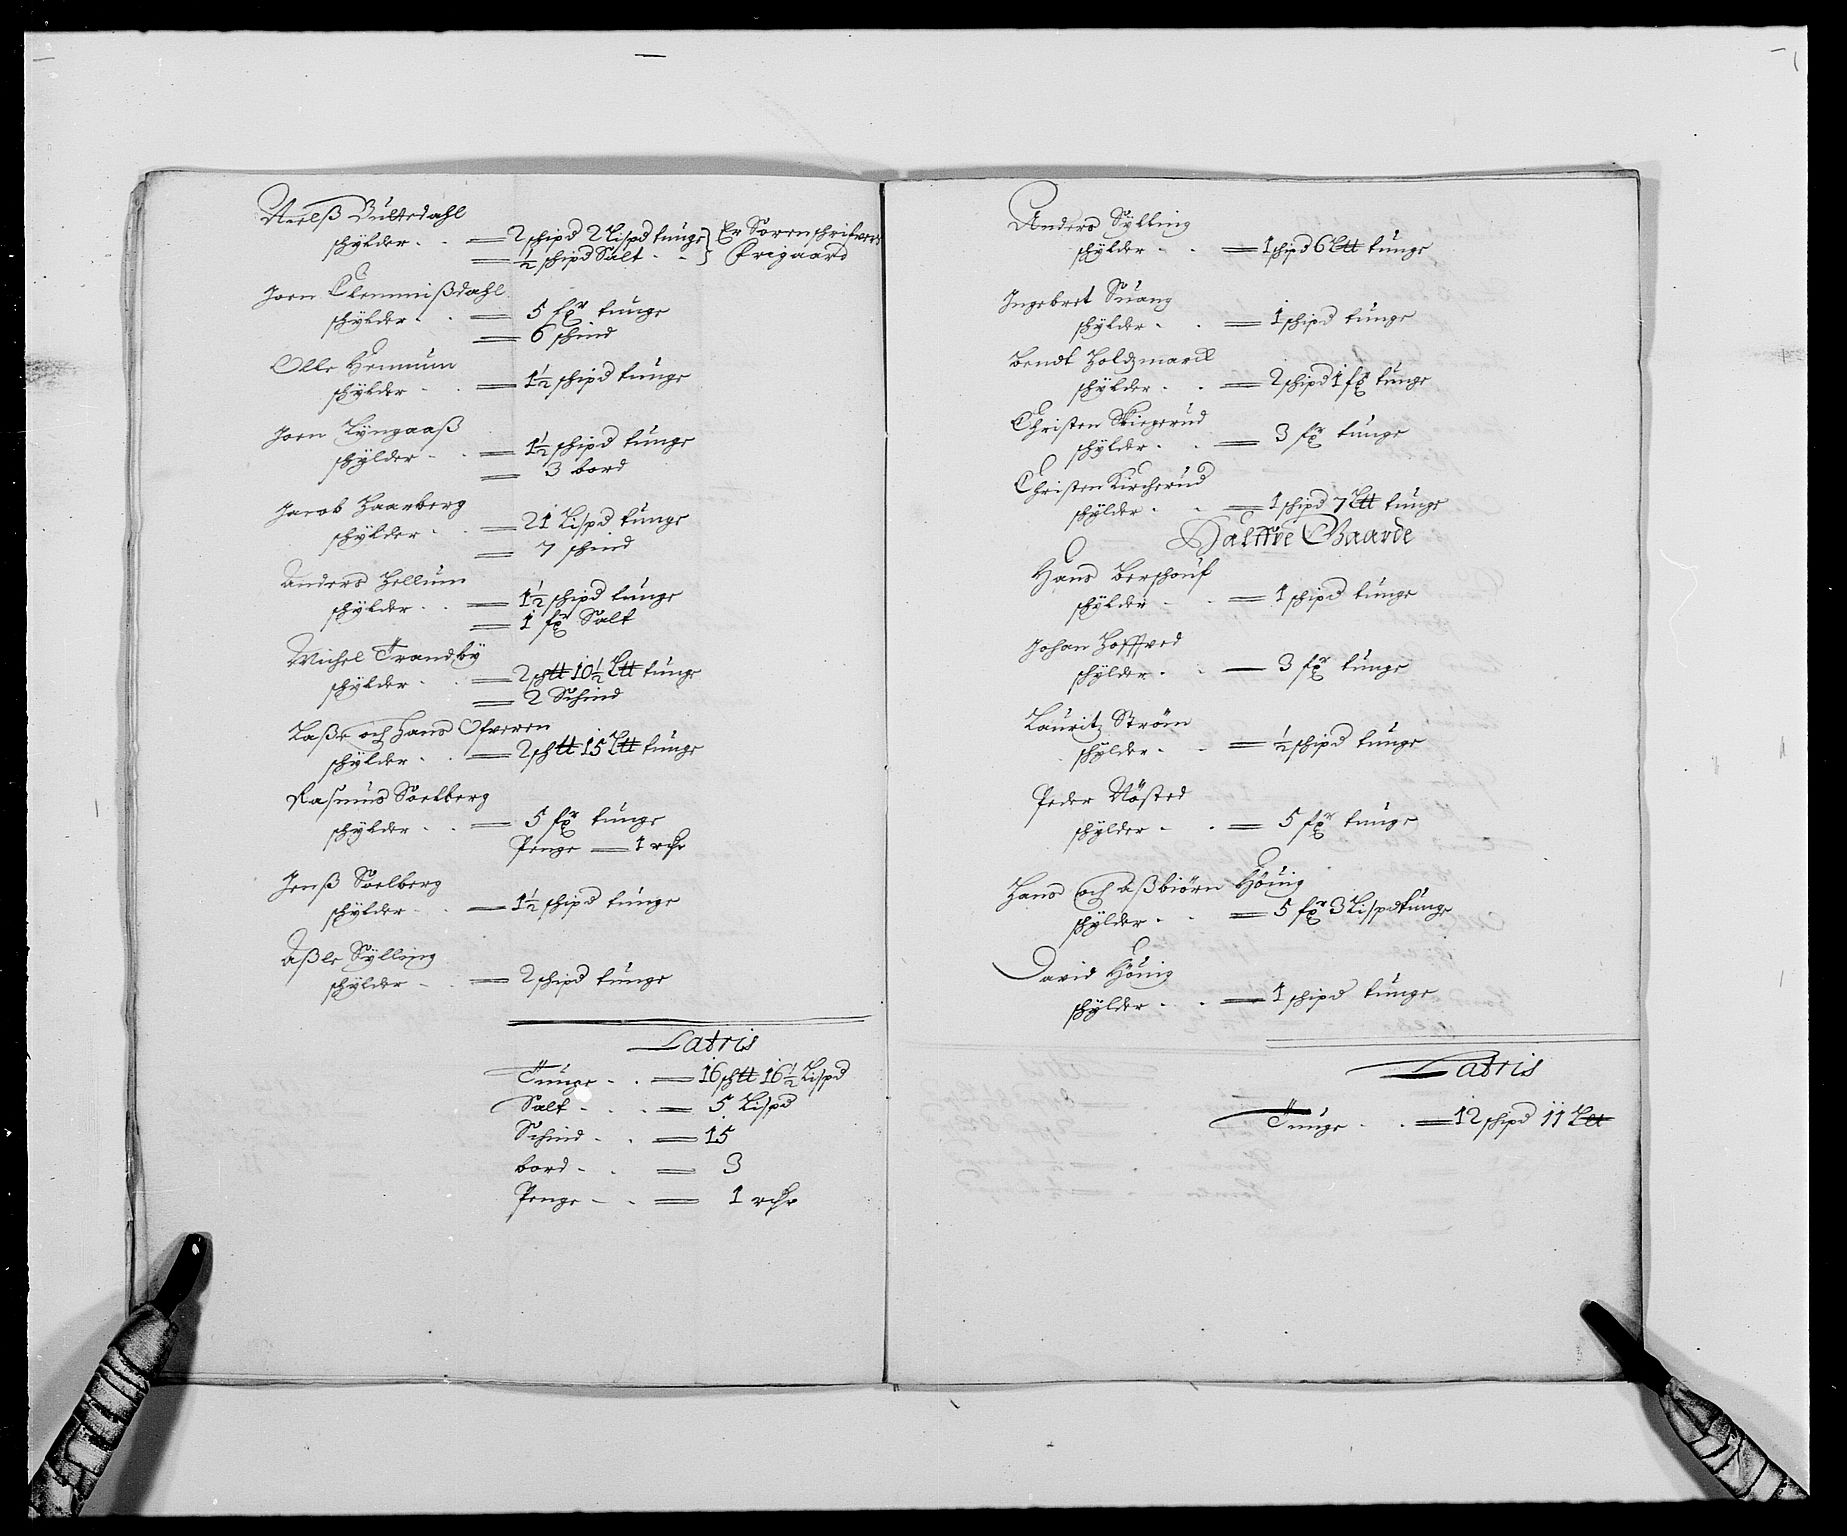 Nielß Bultedahl
schÿlder - - = 2 schipd 2 Lispd tunge } Er Sorenschrifvers
= ½ schipd Salt - - } frigaard
Joen Clemmißdahl
schÿlder - - = 5 fxr tunge
= 6 schind
Olle Hennum
schÿlder - - = 1½ schipd tunge
Joen Lÿngaaß
schÿlder - - = 1½ schipd tunge
= 3 bord
Jacob Haarberg
schÿlder - - = 21 Lispd tunge
= 7 schind
Anders Hellum
schÿlder - - = 1½ schipd tunge
= 1 fxr Salt
Michel Trandbÿ
schÿlder - - = 2 schtt 10½ Ltt tunge
= 2 Schind
Laße och Hans Ofveren
schÿlder - - = 2 schtt 15 Ltt tunge
Rasmus Soelberg
schÿlder - - = 5 fxr tunge
Penge = 1 rdr
Jenß Soelberg
schÿlder - - = 1½ schipd tunge
Aßle Sÿlling
schÿlder - - = 2 schipd tunge
Latris
Tunge - - = 16 schtt 16½ Lispd
Salt - - - = 5 Lispd
Schind - - = 15
bord - - = 3
Penge - - = 1 rdr
Anders Sÿlling
schÿlder - - = 1 schipd 6 Ltt tunge
Ingebret Suang
schÿlder - - = 1 schipd tunge
Bendt Holdzmarck
schÿlder - - = 2 schipd 1 fxr tunge
Christen Skiegerud
schÿlder - - = 3 fxr tunge
Christen Kircherud
schÿlder - - = 1 schipd 7 Ltt tunge
Halffve Gaarde
Hans Berschouf
schÿlder - - = 1 schipd tunge
Johan Hoffved
schÿlder - - = 3 fxr tunge
Lauritz Ström
schÿlder - - = ½ schipd tunge
Peder Nösted
schÿlder - - = 5 fxr tunge
Hans och Aßbiörn Hönig
schÿlder - - = 5 fxr 3 Lispd tunge
David Hönig
schÿlder - - = 1 schipd tunge
Latris
Tunge - - = 12 schipd 11 Ltt